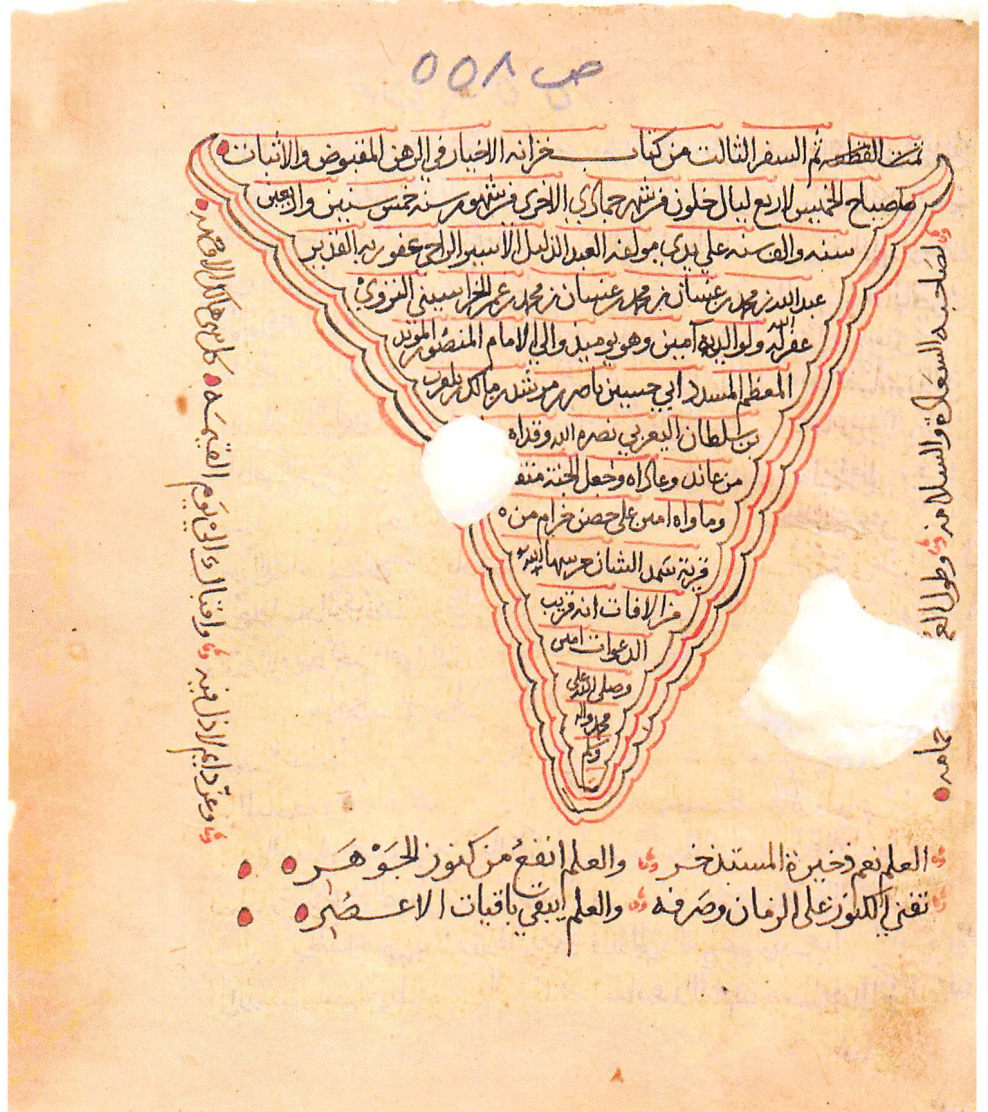 ص ٥٥٨
تمت القطعه تم السفر الثالث من كتاب خزانه الاخيار في الرهن المقبوض والاثبات
صباح الخميس لاربع ليال خلون من شهر جمادي الاخرى من شهور سنه خمس سنين واربعين
سنه والف سنه على يدي مولفه العبد الذليل الاسير الراجي عفو ربه القدير
عبد الله بن محمد بن غسان بن محمد بن غسان بن محمد بن عمر الخراسيني النزوي
غفر الله له ولوالديه آمين وهو يوميذ والي الامام المنصور المويد
المعظم المسدد ابي حسين ناصر بن مرشد بن مالك بن بلعرب
بن سلطان اليعربي نصره الله وقداه
من عانده وعاداه وجعل الجنة
وماواه امين على حصن خرام من
قرية سمد الشان حرسها الله
من الافات انه قريب
الدعوات امين
وصلى الله على
محمد واله
وسلم
لصاحبه السعادة والسلامه وطول
حمامه
كل بري هالك لا وحمه
وعز دايم لا ذل فيه واقبال الى يوم القيمه
العلم نعم ذخيرة المستذخر والعلم انفع من كنوز الجوهر
تفني الكنوز على الزمان وصرفه والعلم يبقي باقيات الاعصر